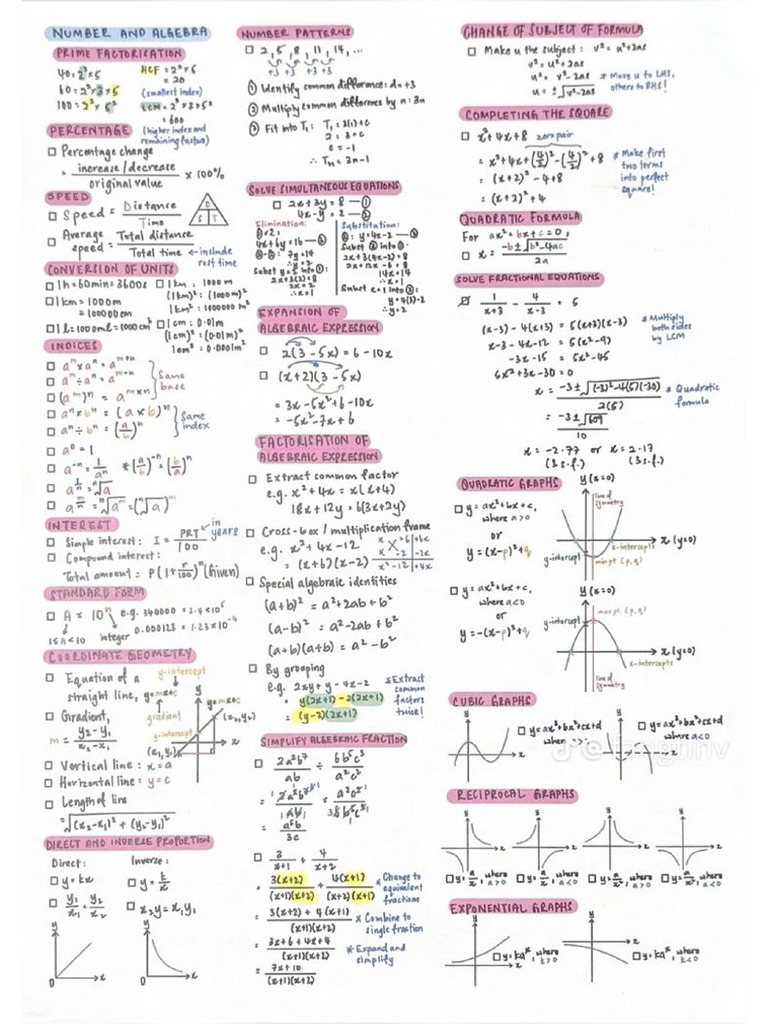 NUMBER AND ALGEBRA
PRIME FACTORISATION
40 = 2³ × 5
60 = 2² × 3 × 5
100 = 2² × 5²
HCF = 2² × 5
= 20
(smallest index)
LCM = 2³ × 3 × 5²
= 600
(higher index and
remaining factors)
PERCENTAGE
Percentage change
= increase / decrease / original value × 100%
SPEED
Speed = Distance / Time
D
S T
Average speed = Total distance / Total time
← include
rest time
CONVERSION OF UNITS
1h = 60min = 3600s
1km = 1000m
= 100000cm
1l = 1000ml = 1000cm³
1km : 1000m
(1km)² : (1000m)²
1km² : 1000000m²
1cm : 0.01m
(1cm)² : (0.01m)²
1cm² : 0.0001m²
INDICES
aᵐ × aⁿ = aᵐ⁺ⁿ
aᵐ ÷ aⁿ = aᵐ⁻ⁿ
(aᵐ)ⁿ = aᵐˣⁿ
Same
base
aⁿ × bⁿ = (a × b)ⁿ
aⁿ ÷ bⁿ = (a/b)ⁿ
Same
index
a⁰ = 1
a⁻ⁿ = 1/aⁿ * (a/b)⁻ⁿ = (b/a)ⁿ
a^(1/n) = ⁿ√a
a^(m/n) = ⁿ√aᵐ = (ⁿ√a)ᵐ
INTEREST
Simple interest: I = PRT/100
in
years
Compound interest:
Total amount = P(1 + r/100)ⁿ (Given)
STANDARD FORM
A × 10ⁿ
1 ≤ A < 10
integer
0.000123 = 1.23 × 10⁻⁴
COORDINATE GEOMETRY
Equation of a
straight line, y = mx + c
y-intercept
gradient
Gradient,
m = y₂ - y₁ / x₂ - x₁
y
y = mx + c
(x₂, y₂)
y-intercept
(x₁, y₁)
x
Vertical line : x = a
Horizontal line : y = c
Length of line
= √(x₂ - x₁)² + (y₂ - y₁)²
DIRECT AND INVERSE PROPORTION
Direct:
y = kx
y₁/x₁ = y₂/x₂
y
0
x
Inverse:
y = k/x
x₂y₂ = x₁y₁
y
0
x
NUMBER PATTERNS
2, 5, 8, 11, 14, ...
+3 +3 +3 +3
① Identify common difference: d = +3
② Multiply common difference by n : 3n
③ Fit into T₁ : T₁ = 3(1) + c
2 = 3 + c
c = -1
∴ Tₙ = 3n - 1
SOLVE SIMULTANEOUS EQUATIONS
2x + 3y = 8 — ①
4x - y = 2 — ②
Elimination:
① × 2:
4x + 6y = 16 — ③
③ - ②: 7y = 14
∴ y = 2
Subst y = 2 into ①:
2x + 3(2) = 8
2x = 2
∴ x = 1
Substitution:
②: y = 4x - 2 — ③
Subst ③ into ①:
2x + 3(4x - 2) = 8
2x + 12x - 6 = 8
14x = 14
∴ x = 1
Subst x = 1 into ③:
y = 4(1) - 2
∴ y = 2
EXPANSION OF
ALGEBRAIC EXPRESSION
2(3 - 5x) = 6 - 10x
(x + 2)(3 - 5x)
= 3x - 5x² + 6 - 10x
= -5x² - 7x + 6
FACTORISATION OF
ALGEBRAIC EXPRESSION
Extract common factor
e.g. x² + 4x = x(x + 4)
18x + 12y = 6(3x + 2y)
Cross-box / multiplication frame
e.g. x² + 4x - 12
= (x + 6)(x - 2)
x +6 +6x
x -2 -2x
x² -12 +4x
Special algebraic identities
(a + b)² = a² + 2ab + b²
(a - b)² = a² - 2ab + b²
(a + b)(a + b) = a² - b²
By grouping
e.g. 2xy + y - 4x - 2
= y(2x + 1) - 2(2x + 1)
= (y - 2)(2x + 1)
* Extract
common
factors
twice!
SIMPLIFY ALGEBRAIC FRACTION
3/x+1 + 4/x+2
= 3(x+2)/(x+1)(x+2) + 4(x+1)/(x+2)(x+1)
* Change to
equivalent
fractions
= 3(x+2) + 4(x+1) / (x+1)(x+2)
* Combine to
single fraction
= 3x + 6 + 4x + 4 / (x+1)(x+2)
* Expand and
simplify
= 7x + 10 / (x+1)(x+2)
CHANGE OF SUBJECT OF FORMULA
Make u the subject : v² = u² + 2as
v² = u² + 2as
u² = v² - 2as
u = ±√v² - 2as
* Move u to LHS,
others to RHS!
COMPLETING THE SQUARE
x² + 4x + 8
zero pair
= x² + 4x + (4/2)² - (4/2)² + 8
= (x + 2)² - 4 + 8
= (x + 2)² + 4
* Make first
two terms
into perfect
square!
QUADRATIC FORMULA
For ax² + bx + c = 0,
x = -b ± √b² - 4ac / 2a
SOLVE FRACTIONAL EQUATIONS
1/x+3 - 4/x-3 = 5
(x-3) - 4(x+3) = 5(x+3)(x-3)
x - 3 - 4x - 12 = 5(x² - 9)
-3x - 15 = 5x² - 45
5x² + 3x - 30 = 0
* Multiply
both sides
by LCM
x = -3 ± √(-3)² - 4(5)(-30) / 2(5)
* Quadratic
formula
= -3 ± √609 / 10
x = -2.77 or x = 2.17
(3 s.f.) (3 s.f.)
QUADRATIC GRAPHS
y = ax² + bx + c,
where a > 0
or
y = (x - p)² + q
y (x = 0)
line of
symmetry
x (y = 0)
y-intercept
x-intercepts
min pt (p, q)
y = ax² + bx + c,
where a < 0
or
y = -(x - p)² + q
y (x = 0)
max pt. (p, q)
y-intercept
x (y = 0)
x-intercepts
line of
symmetry
CUBIC GRAPHS
y
x
y = ax³ + bx² + cx + d
y
x
y = ax³ + bx² + cx + d
where a < 0
RECIPROCAL GRAPHS
y = a/x, where a > 0
y = a/x, where a < 0
y = a/x², where a > 0
y = a/x², where a < 0
EXPONENTIAL GRAPHS
y
x
y = kaˣ, where
k > 0
y
x
y = kaˣ, where
k < 0